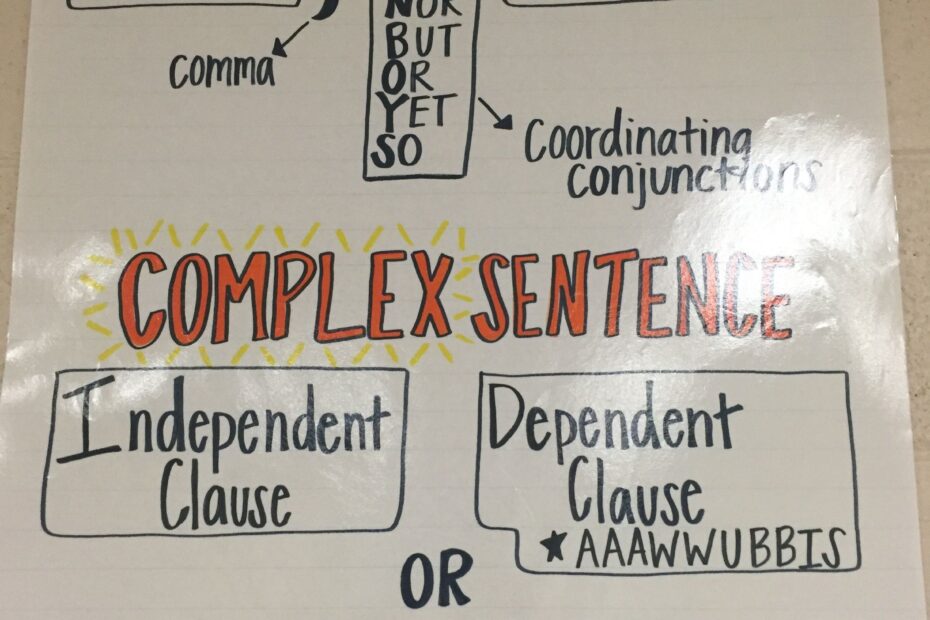 NOR
BUT
comma
OR
YET
SO
Coordinating
conjunctions
COMPLEX SENTENCE
Independent
Clause
Dependent
Clause
★ AAAWWUBBIS
OR